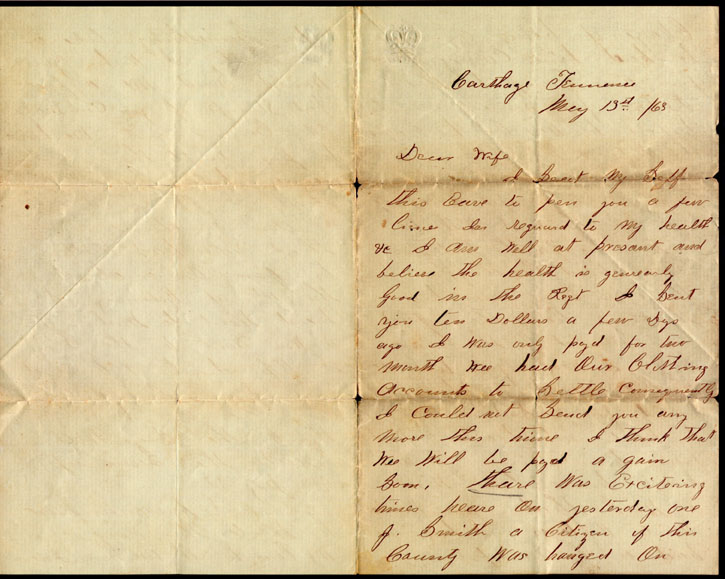 Carthage Tennessee
May 13st /63
Dear Wife
I Seat My Self
this Eave to pen you a few
lines In reguard to My health
&c I Am Well at presant and
believe the health is generaly
Good in the Regt I Sent
you ten Dollars a few Days
ago I Was only payd for two
month Wee had Our Clothing
Accounts to Settle Consequently
I Could not Send you any
More this time I think that
Wee Will be payd a gain
Soon. thare Was Exciteing
times heare On yesterday one
J. Smith a Citizen of this
County Was hanged On